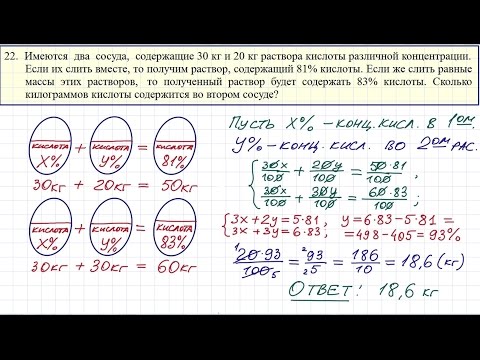 22. Имеются два сосуда, содержащие 30 кг и 20 кг раствора кислоты различной концентрации.
Если их слить вместе, то получим раствор, содержащий 81% кислоты. Если же слить равные
массы этих растворов, то полученный раствор будет содержать 83% кислоты. Сколько
килограммов кислоты содержится во втором сосуде?
Пусть X% – конц. кисл. в 1ом.
У% – конц. кисл. во 2ом рас.
кислота X% + кислота У% = кислота 81%
30кг + 20кг = 50кг
30x/100 + 20y/100 = 50·81/100,
30x/100 + 30y/100 = 60·83/100;
кислота X% + кислота У% = кислота 83%
30кг + 30кг = 60кг
3x+2y=5·81, y=6·83-5·81=
3x+3y=6·83; =498-405=93%
20·93/100 = 93/5 = 186/10 = 18,6 (кг)
Ответ: 18,6 кг